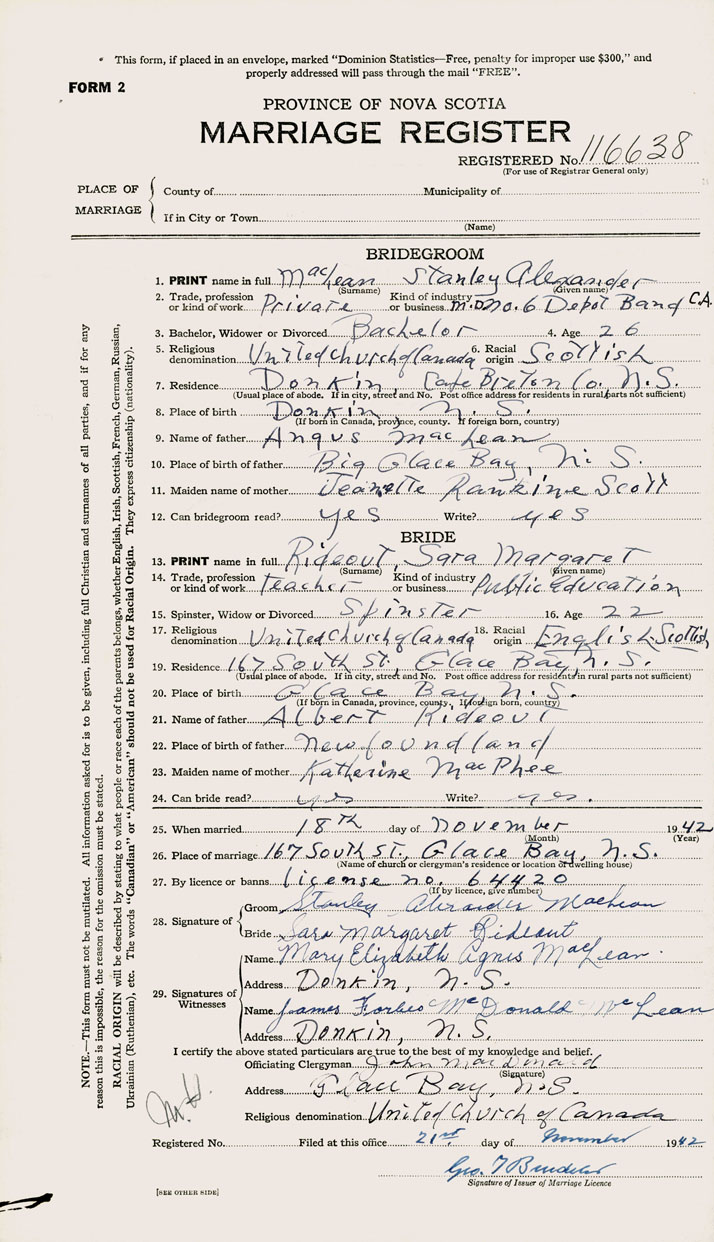 This form, if placed in an envelope, marked “Dominion Statistics—Free, penalty for improper use $300,” and
properly addressed will pass through the mail “FREE”.
FORM 2
PROVINCE OF NOVA SCOTIA
MARRIAGE REGISTER
REGISTERED No. 116638
(For use of Registrar General only)
PLACE OF MARRIAGE
County of Municipality of
If in City or Town
(Name)
BRIDEGROOM
1. PRINT name in full MacLean Stanley Alexander
(Surname) (Given name)
2. Trade, profession or kind of work Private Kind of industry or business M.D. No. 6 Depot Band C.A.
3. Bachelor, Widower or Divorced Bachelor 4. Age 26
5. Religious denomination United Church of Canada 6. Racial origin Scottish
7. Residence Donkin, Cape Breton Co., N.S.
(Usual place of abode. If in city, street and No. Post office address for residents in rural parts not sufficient)
8. Place of birth Donkin, N. S.
(If born in Canada, province, county. If foreign born, country)
9. Name of father Angus MacLean
10. Place of birth of father Big Glace Bay, N. S.
11. Maiden name of mother Jeanette Rankine Scott
12. Can bridegroom read? yes Write? yes
BRIDE
13. PRINT name in full Rideout, Sara Margaret
(Surname) (Given name)
14. Trade, profession or kind of work teacher Kind of industry or business Public Education
15. Spinster, Widow or Divorced Spinster 16. Age 22
17. Religious denomination United Church of Canada 18. Racial origin English-Scottish
19. Residence 167 South St., Glace Bay, N.S.
(Usual place of abode. If in city, street and No. Post office address for residents in rural parts not sufficient)
20. Place of birth Glace Bay, N.S.
(If born in Canada, province, county, If foreign born, country)
21. Name of father Albert Rideout
22. Place of birth of father Newfoundland
23. Maiden name of mother Katherine MacPhee
24. Can bride read? yes Write? yes.
25. When married 18th day of November 1942
(Month) (Year)
26. Place of marriage 167 South St., Glace Bay, N.S.
(Name of church or clergyman's residence or location of dwelling house)
27. By licence or banns License no. 64420
(If by licence, give number)
28. Signature of
Groom Stanley Alexander MacLean
Bride Sara Margaret Rideout
29. Signatures of Witnesses
Name Mary Elizabeth Agnis MacLean.
Address Donkin, N.S.
Name James Forbes McDonald McLean
Address Donkin, N.S.
I certify the above stated particulars are true to the best of my knowledge and belief.
Officiating Clergyman John MacDonald
(Signature)
Address Glace Bay, N.S.
Religious denomination United Church of Canada
Registered No. Filed at this office 21st day of November 1942
Geo. T
Signature of Issuer of Marriage Licence
[SEE OTHER SIDE]
NOTE.—This form must not be mutilated. All information asked for is to be given, including full Christian and surnames of all parties, and if for any
reason this is impossible, the reason for the omission must be stated.
RACIAL ORIGIN will be described by stating to what people or race each of the parents belongs, whether English, Irish, Scottish, French, German, Russian,
Ukrainian (Ruthenian), etc. The words “Canadian” or “American” should not be used for Racial Origin. They express citizenship (nationality).